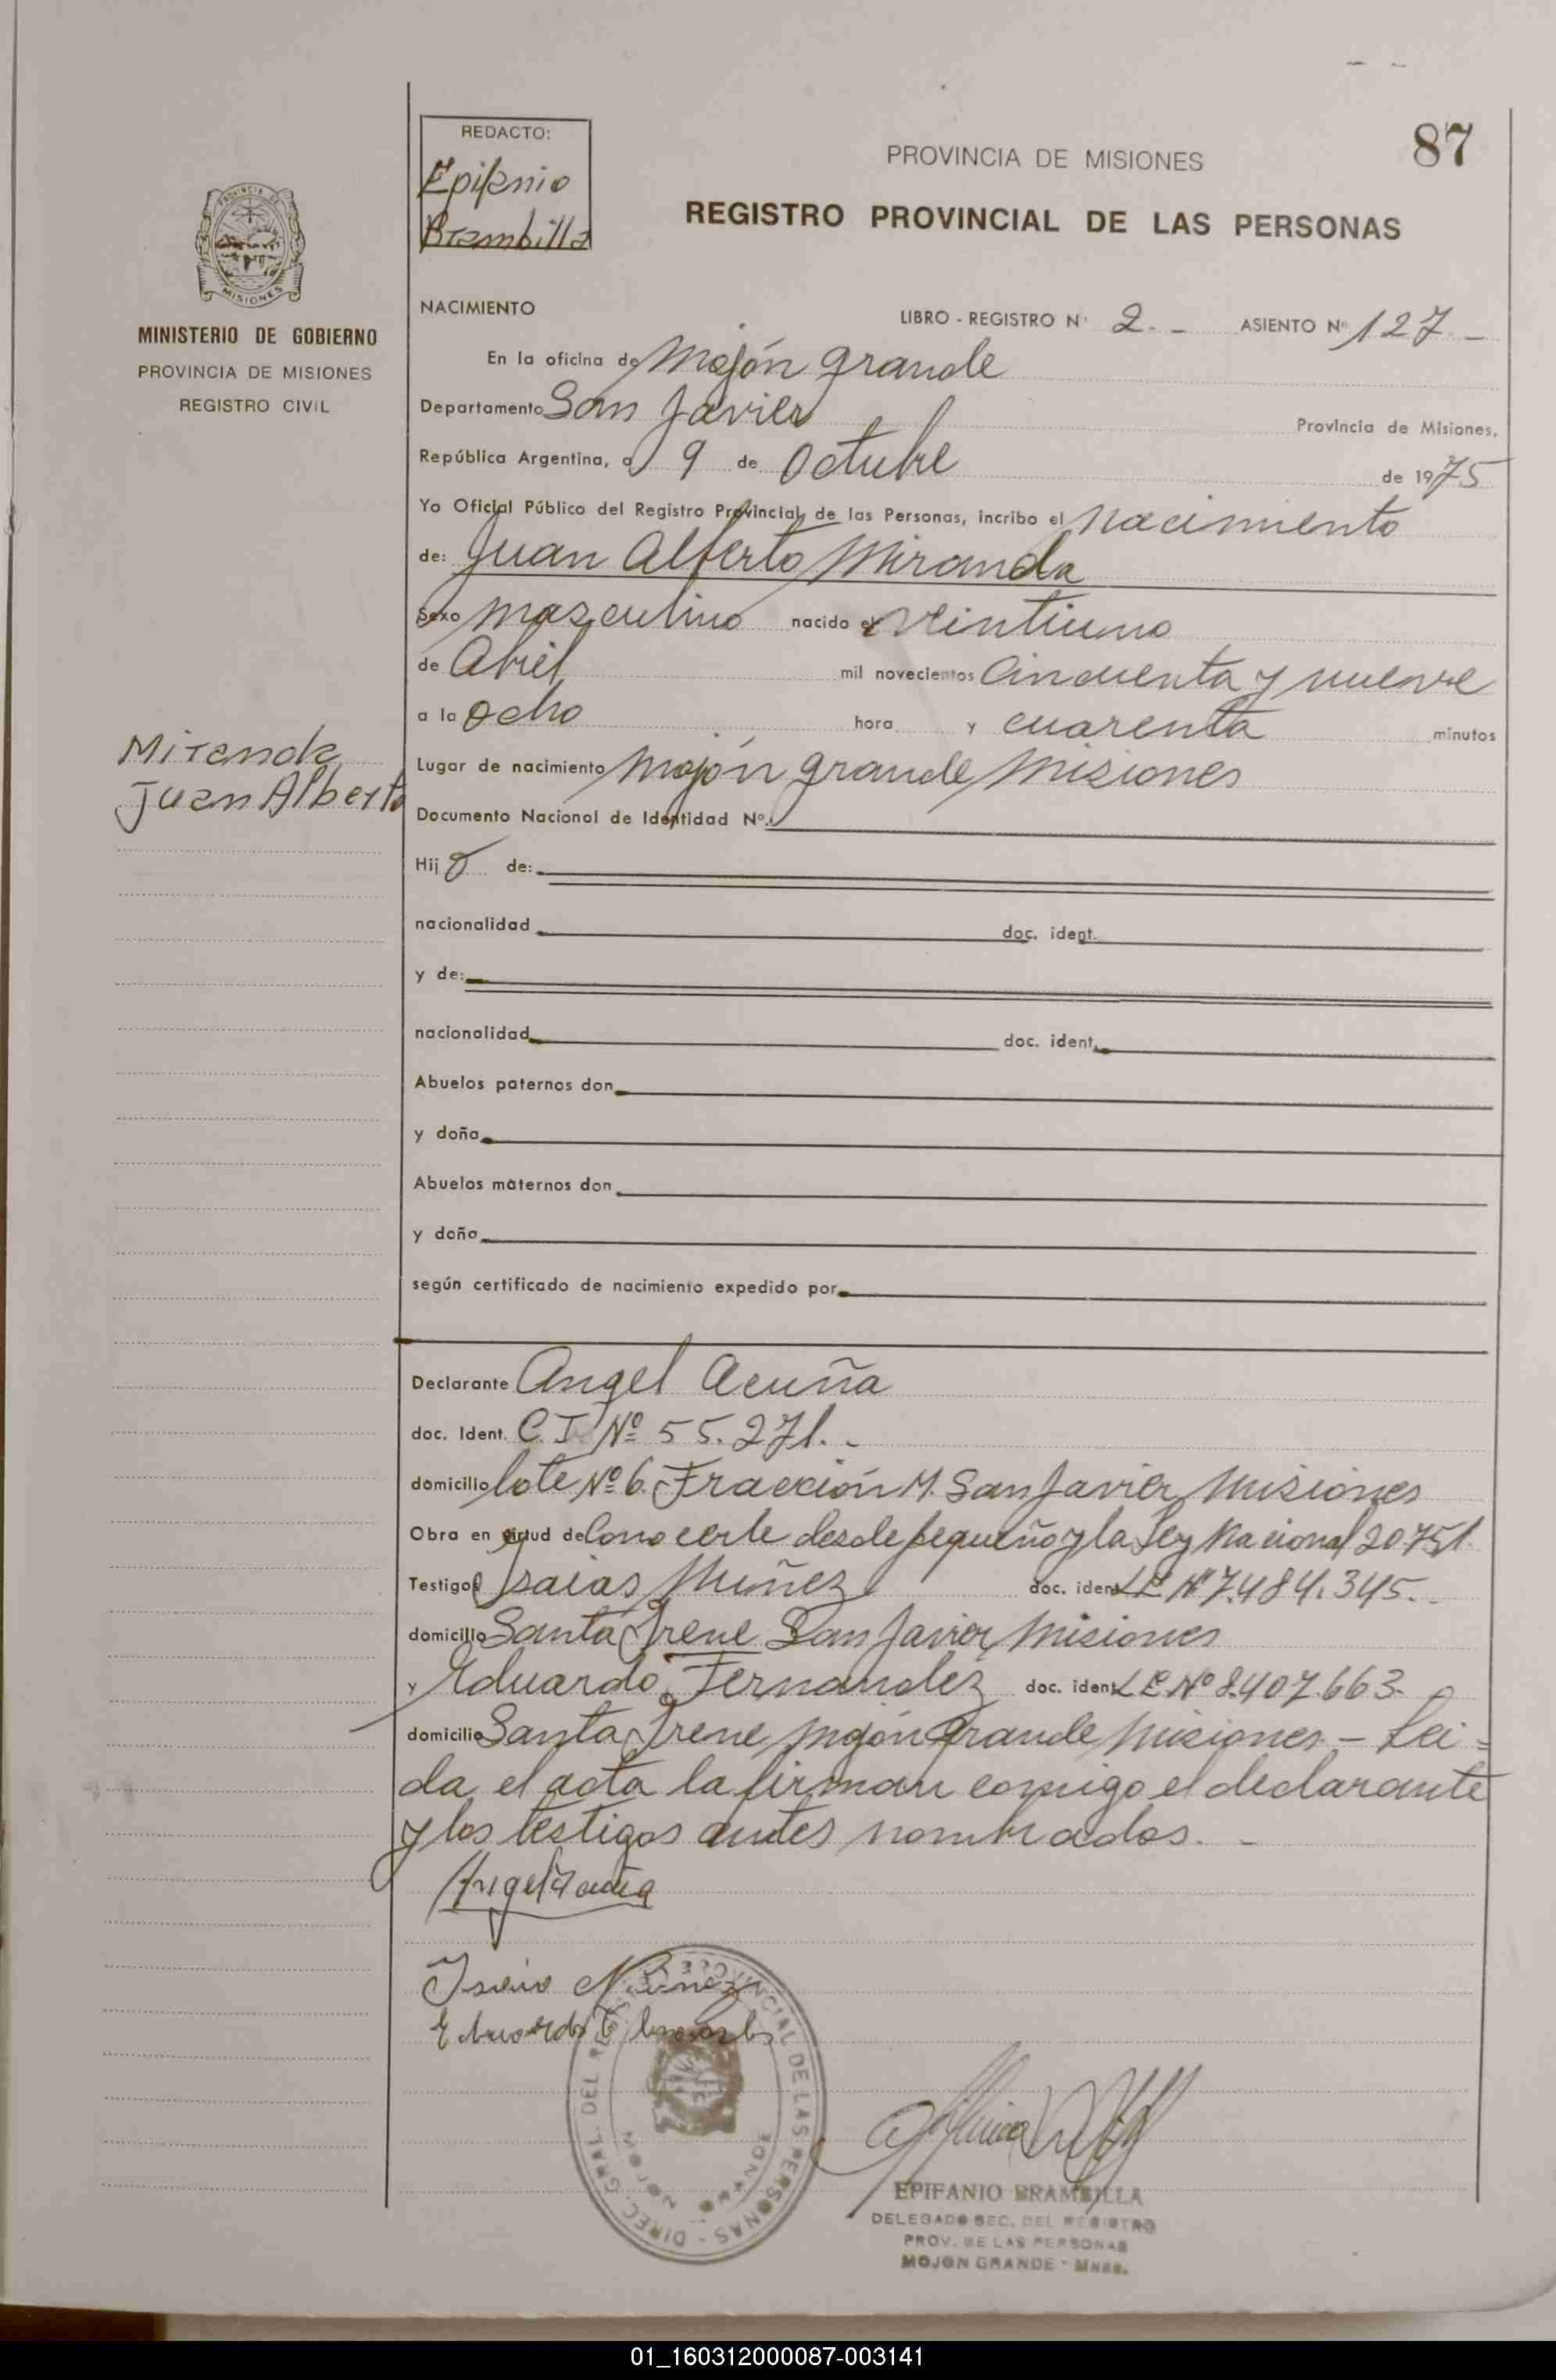 REDACTO:
Epifanio
Brambilla
87
PROVINCIA DE MISIONES
REGISTRO PROVINCIAL DE LAS PERSONAS
PROVINCIA DE
MISIONES
MINISTERIO DE GOBIERNO
PROVINCIA DE MISIONES
REGISTRO CIVIL
NACIMIENTO
LIBRO - REGISTRO Nº 2.- ASIENTO Nº 127.-
En la oficina de Mojón grande
Departamento San Javier Provincia de Misiones,
República Argentina, a 9 de Octubre de 1975
Yo Oficial Público del Registro Provincial de las Personas, incribo el Nacimiento
de: Juan Alberto Miranda
Sexo masculino nacido el Veintiuno
de Abril mil novecientos Cincuenta y nueve
a la ocho hora y cuarenta minutos
Miranda
Juan Alberto
Lugar de nacimiento Mojón grande Misiones
Documento Nacional de Identidad Nº
Hijo de:
nacionalidad doc. ident.
y de:
nacionalidad doc. ident.
Abuelos paternos don
y doña
Abuelos maternos don
y doña
según certificado de nacimiento expedido por
Declarante Angel Acuña
doc. Ident. C.I. Nº 55.271.-
domicilio lote Nº 6. Fracción M. San Javier Misiones
Obra en virtud de Conocerle desde pequeño y la Ley Nacional 20.751.
Testigos Isaias Nuñez doc. ident LE Nº 7.484.345.-
domicilio Santa Irene San Javier, Misiones
y Eduardo Fernandez doc. ident LE Nº 8.407.663-
domicilio Santa Irene, Mojón Grande Misiones - Lei=
da el acta la firman conmigo el declarante
y los testigos antes nombrados.-
Angel Acuña
Isaias Nuñez
DIREC. GRAL. DEL REGISTRO PROVINCIAL DE LAS PERSONAS -
MOJON GRANDE
EPIFANIO BRAMBILLA
DELEGADO SEC. DEL REGISTRO
PROV. DE LAS PERSONAS
MOJON GRANDE - Mnes.
01_160312000087-003141